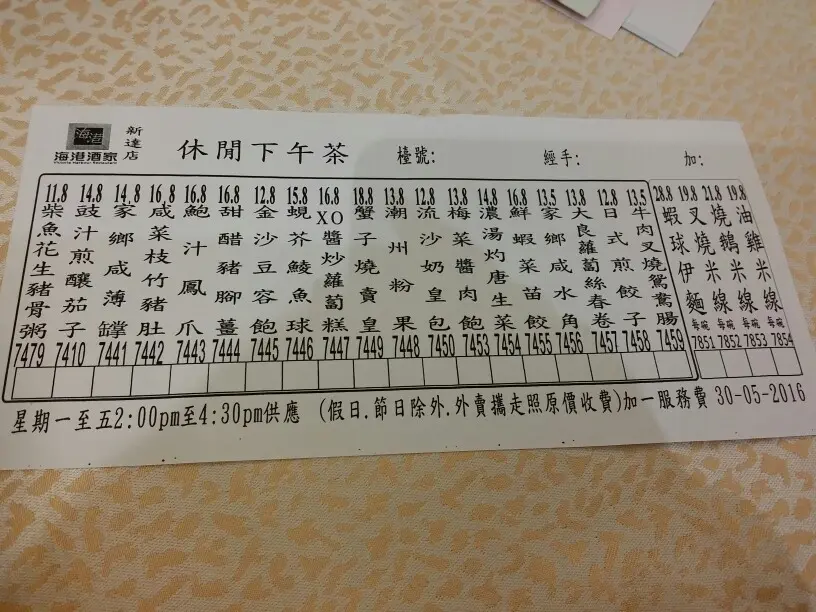 海港
海港酒家
Victoria Harbour Restaurant
新達店
休閒下午茶
檯號:
經手:
加:
11.8 柴魚花生豬骨粥 7479
14.8 豉汁煎釀茄子 7410
14.8 家鄉咸薄罉 7441
16.8 咸菜枝竹豬肚 7442
16.8 鮑汁鳳爪 7443
16.8 甜醋豬腳薑 7444
12.8 金沙豆容飽 7445
15.8 蜆芥鯪魚球 7446
16.8 XO醬炒蘿蔔糕 7447
18.8 蟹子燒賣皇 7449
13.8 潮州粉果 7448
12.8 流沙奶皇包 7450
13.8 梅菜醬肉飽 7453
14.8 濃湯灼唐生菜 7454
16.8 鮮蝦菜苗餃 7455
13.5 家鄉咸水角 7456
13.8 大良蘿蔔絲春卷 7457
12.8 日式煎餃子 7458
13.5 牛肉叉燒鴛鴦腸 7459
28.8 蝦球伊麵 每碗 7851
19.8 叉燒米線 每碗 7852
21.8 燒鵝米線 每碗 7853
19.8 油雞米線 每碗 7854
星期一至五2:00pm至4:30pm供應 (假日.節日除外.外賣攜走照原價收費)加一服務費 30-05-2016